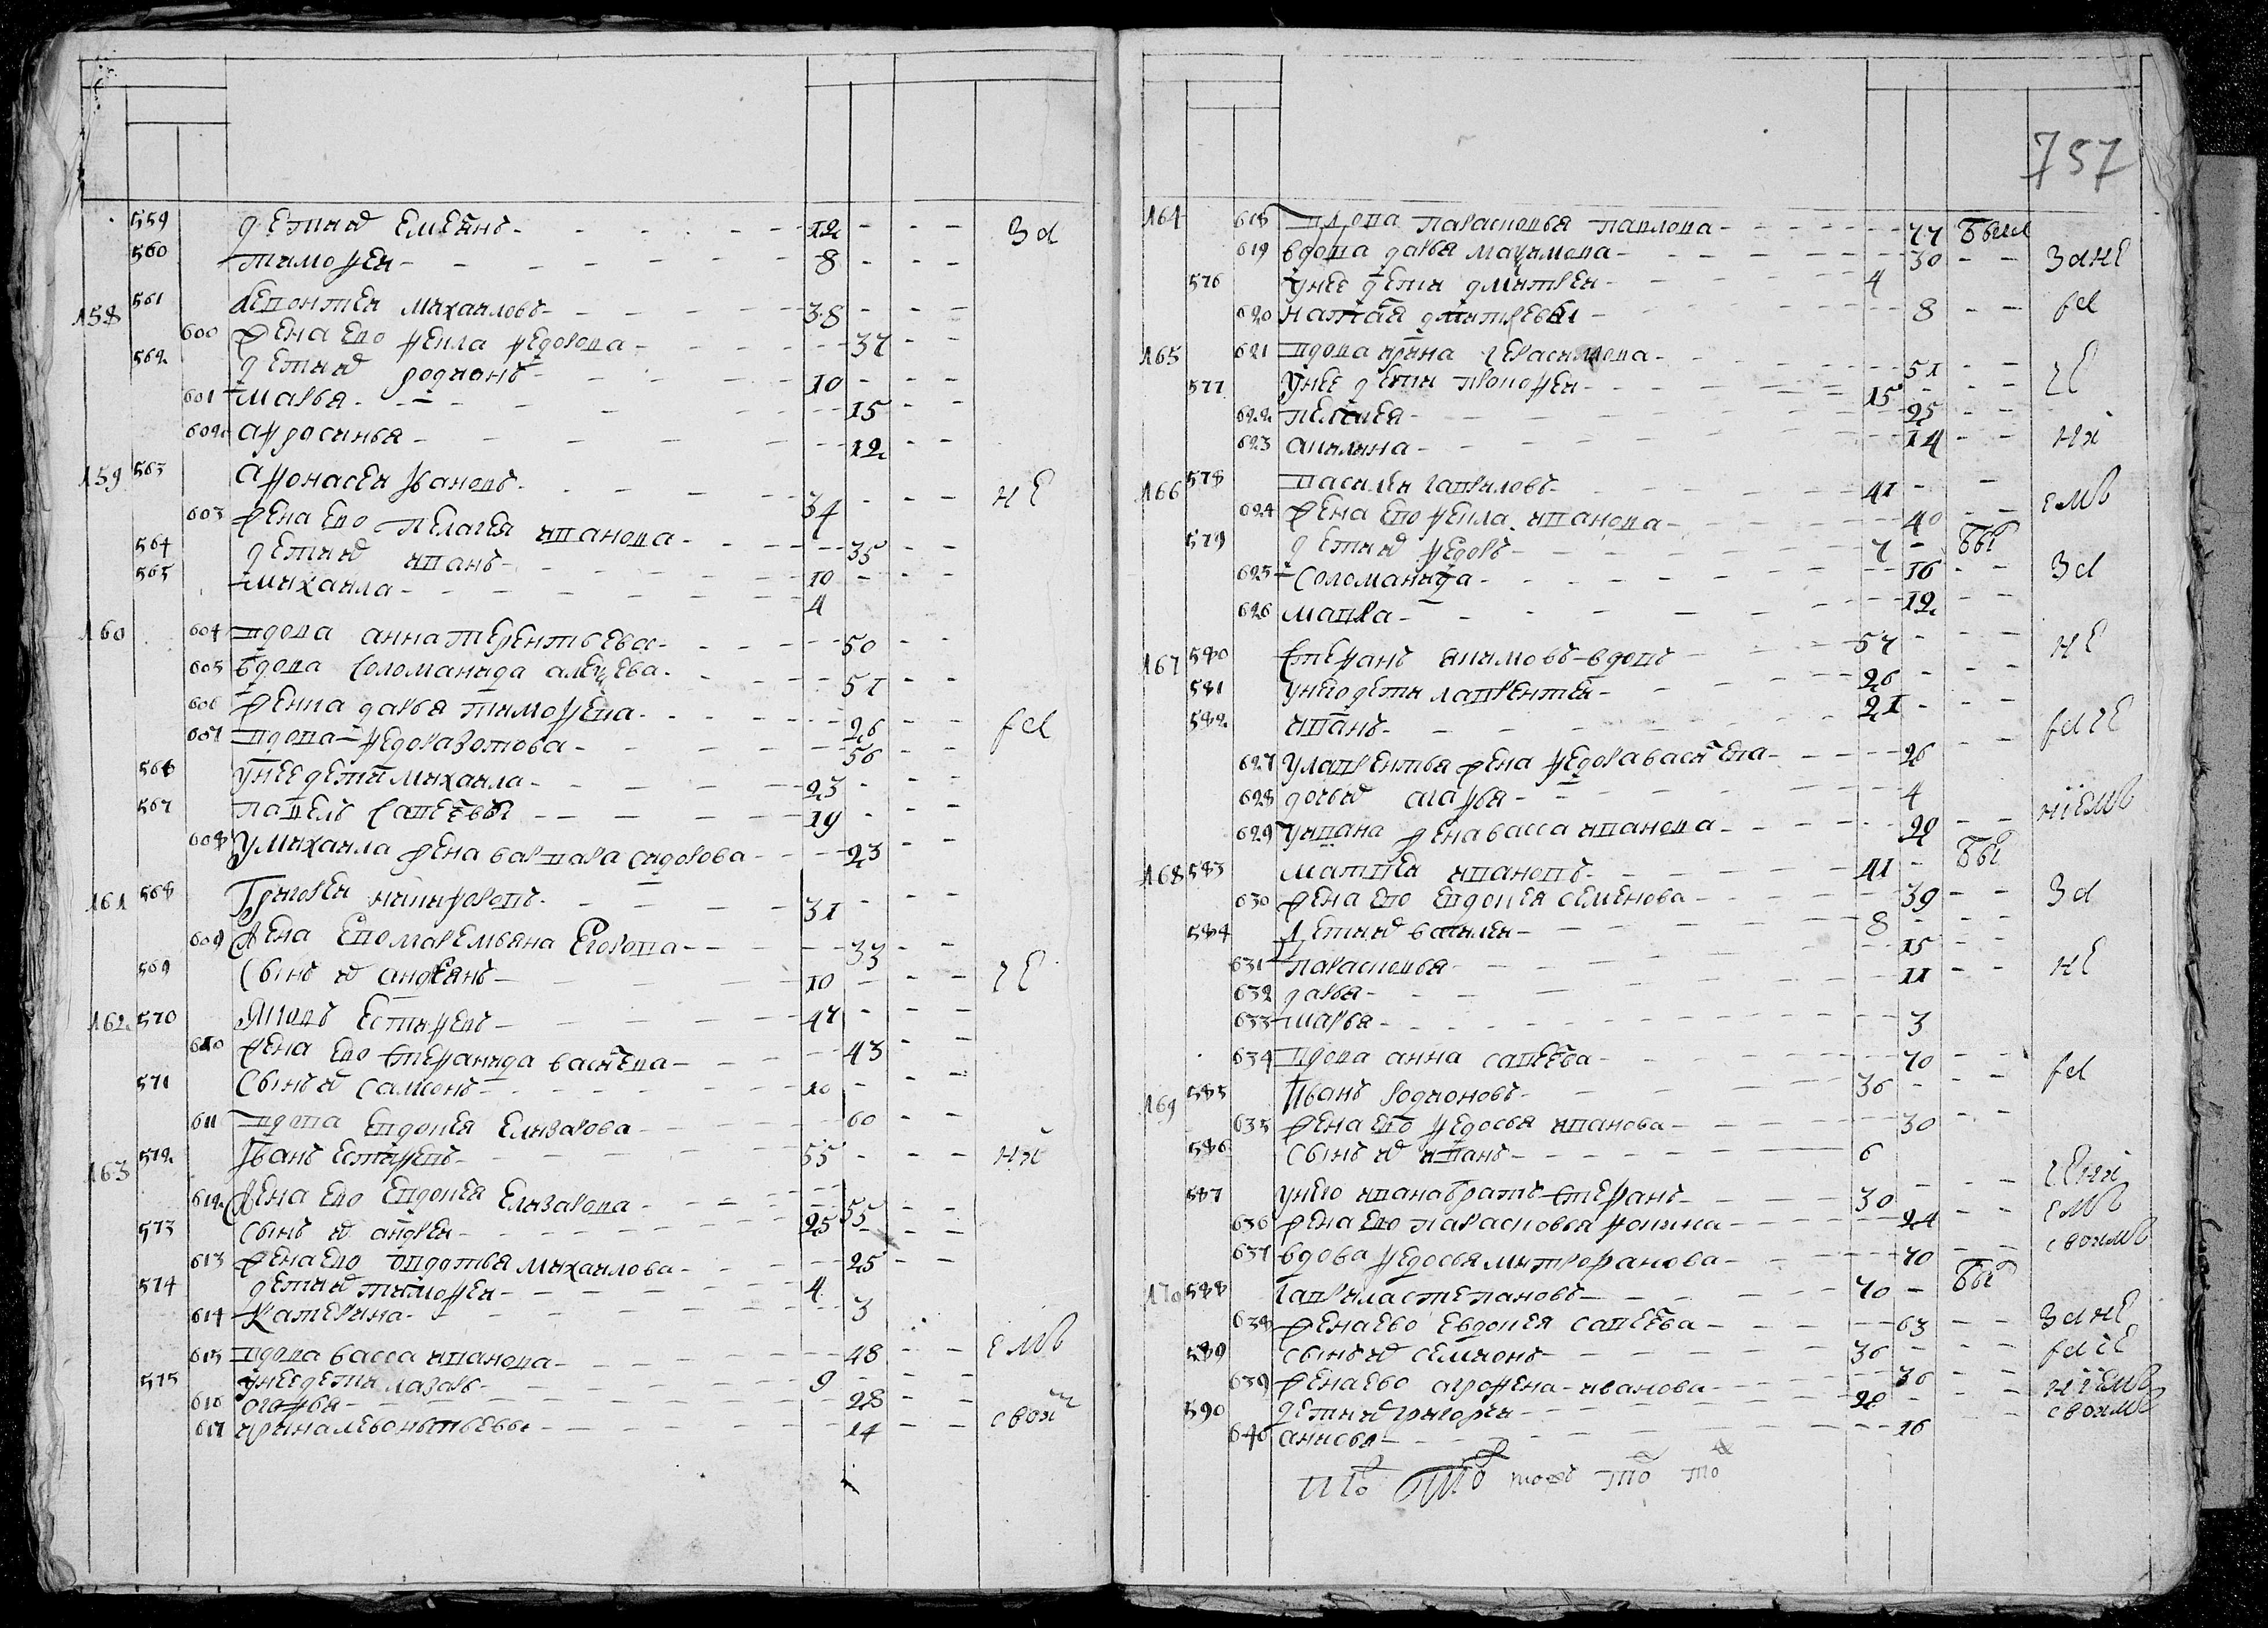 559 дети их Емельянъ 12
560 тимофеи 8
158 561 Леонтеи михаиловъ 38
600 жена ево фекла федорова 37
562 дети их родионъ 10
601 марья 15
602 афросинья 12
159 563 Афонасеи Ивановъ 34
603 жена ево пелагея иванова 35
564 дети их иванъ 10
565 михаила 4
160 604 вдова анна терентьева 50
605 вдова соломанида алексеева 51
606 дарья тимофеева 26
607 вдова федора зотова 56
566 у нее дети михаила 23
567 павелъ савельевы 19
608 у михаила жена варвара сидорова 23
161 568 Григореи никифоровъ 31
609 жена ево маремьяна Егорова 33
569 сынъ их андреянъ 10
162 570 Яковъ Естифеевъ 47
610 жена ево степанида васильева 43
571 сынъ их самсонъ 10
611 вдова евдокея Елизарова 60
163 572 Иванъ Естифеевъ 55
612 жена ево евдокея Елизарова 55
573 сынъ их андреи 25
613 жена ево авдотья михаилова 25
574 дети их тимофеи 4
614 катерина 3
615 вдова васса иванова 48
575 у нее дети лазарь 9
616 агафья 28
617 ирина левонтьевы 14
757
164 618 вдова парасковья павлова 77 были
619 вдова дарья максимова 30
576 у нее дети дмитреи 4
620 наталья дмитревы 8
165 621 вдова ирина герасимова 51
577 у нее дети прокофеи 15
622 пелагея 25
623 акилина 14
166 578 василеи гавриловъ 41
624 жена ево фекла иванова 40
579 дети их федоръ 7
625 соломанида 16
626 мавра 12
167 580 степанъ якимовъ вдовъ 57
581 у него дети лаврентеи 26
582 иванъ 21
627 у лаврентья жена федора васильева 26
628 дочь их агафья 4
629 у ивана жена васса иванова 20
168 583 матвеи ивановъ 41
630 жена ево евдокея семенова 39
584 дети их василеи 8
631 парасковья 15
632 дарья 11
633 марья 3
634 вдова анна савельева 70
169 585 Иванъ родионовъ 36
635 жена ево федосья иванова 30
586 сынъ их иванъ 6
587 у него ивана братъ степанъ 30
636 жена ево парасковья фокина 24
637 вдова федосья митрофанова 70
170 588 гаврила степановъ 70
638 жена ево евдокея савельева 63
589 сынъ их семионъ 36
639 жена ево агрофена иванова 36
590 дети их григореи 20
640 анисья 16